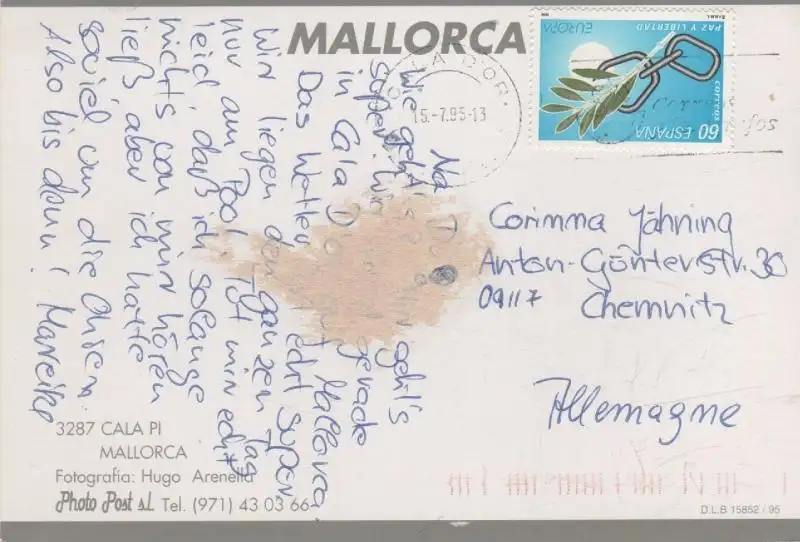 MALLORCA
CALA D'OR
15.-7.95-13
EUROPA
PAZ Y LIBERTAD
correos
60 ESPAÑA
Na
Wie geht's geht's
super. Wir gerade
in Cala D Mallorca
Das Wetter echt super.
Wir liegen den ganzen Tag
nur am Pool. Tut mir echt
leid, daß ich solange
nichts von mir hören
ließ aber ich hatte
soviel um die Ohren.
Also bis dann! Mareike
Corinna Jähning
Anton-Günterstr. 30
09117 Chemnitz
Allemagne
3287 CALA PI
MALLORCA
Fotografía: Hugo Arenella
Photo Post s.l. Tel. (971) 43 03 66
D.L.B 15852 / 95